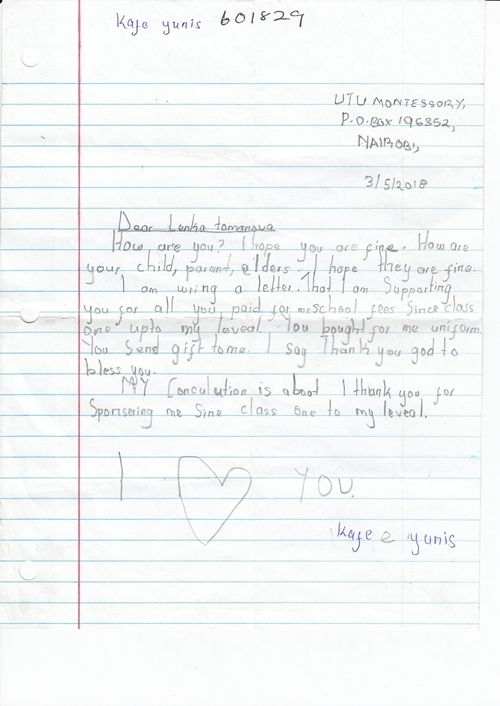 Kafe yunis 601829
UTU MONTESSORY,
P.O.BOX 196352,
NAIROBI,
3/5/2018
Dear Lenka tomanova
How are you? I hope you are fine. How are
your, child, parent, elders. I hope they are fine.
I am wring a letter. That I am Supporting
you for all you, paid for me school fees Since class
one upto my leveal. You bought for me uniform
You Send gift to me. I say Thank you god to
bless you.
MY Conculution is about I thank you for
Sponsering me Sine class one to my leveal.
I ♡ YOU.
Kafe e yunis